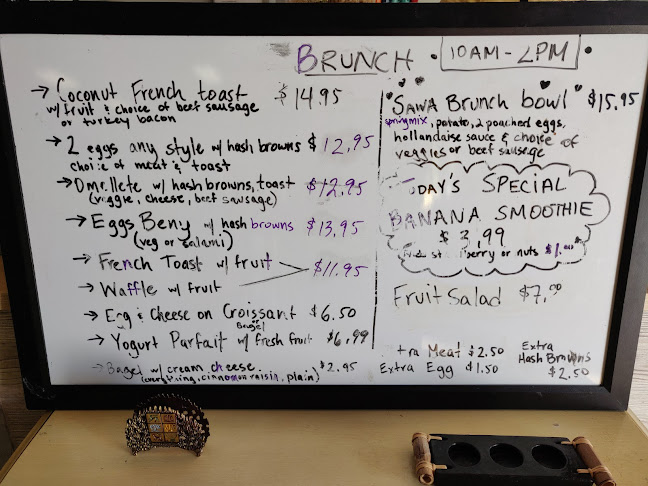 BRUNCH • 10AM - 2PM •
→ Coconut French toast $14.95
w/ fruit & choice of beef sausage
or turkey bacon
→ 2 eggs any style w/ hash browns $12.95
choice of meat & toast
→ Omellete w/ hash browns, toast $12.95
(veggie, cheese, beef sausage)
→ Eggs Beny w/ hash browns $13.95
(veg or salami)
→ French Toast w/ fruit
→ Waffle w/ fruit $11.95
→ Egg & Cheese on Croissant $6.50
or Bagel
→ Yogurt Parfait w/ fresh fruit $6.99
→ Bagel w/ cream cheese $2.95
(everything, cinnamon raisin, plain)
"SAWA Brunch bowl" $15.95
springmix, potato, 2 poached eggs,
hollandaise sauce & choice of
veggies or beef sausage
DAY'S SPECIAL
BANANA SMOOTHIE
$3.99
berry or nuts $1.00
Fruit Salad $7.00
tra Meat $2.50
Extra Egg $1.50
Extra
Hash Browns
$2.50